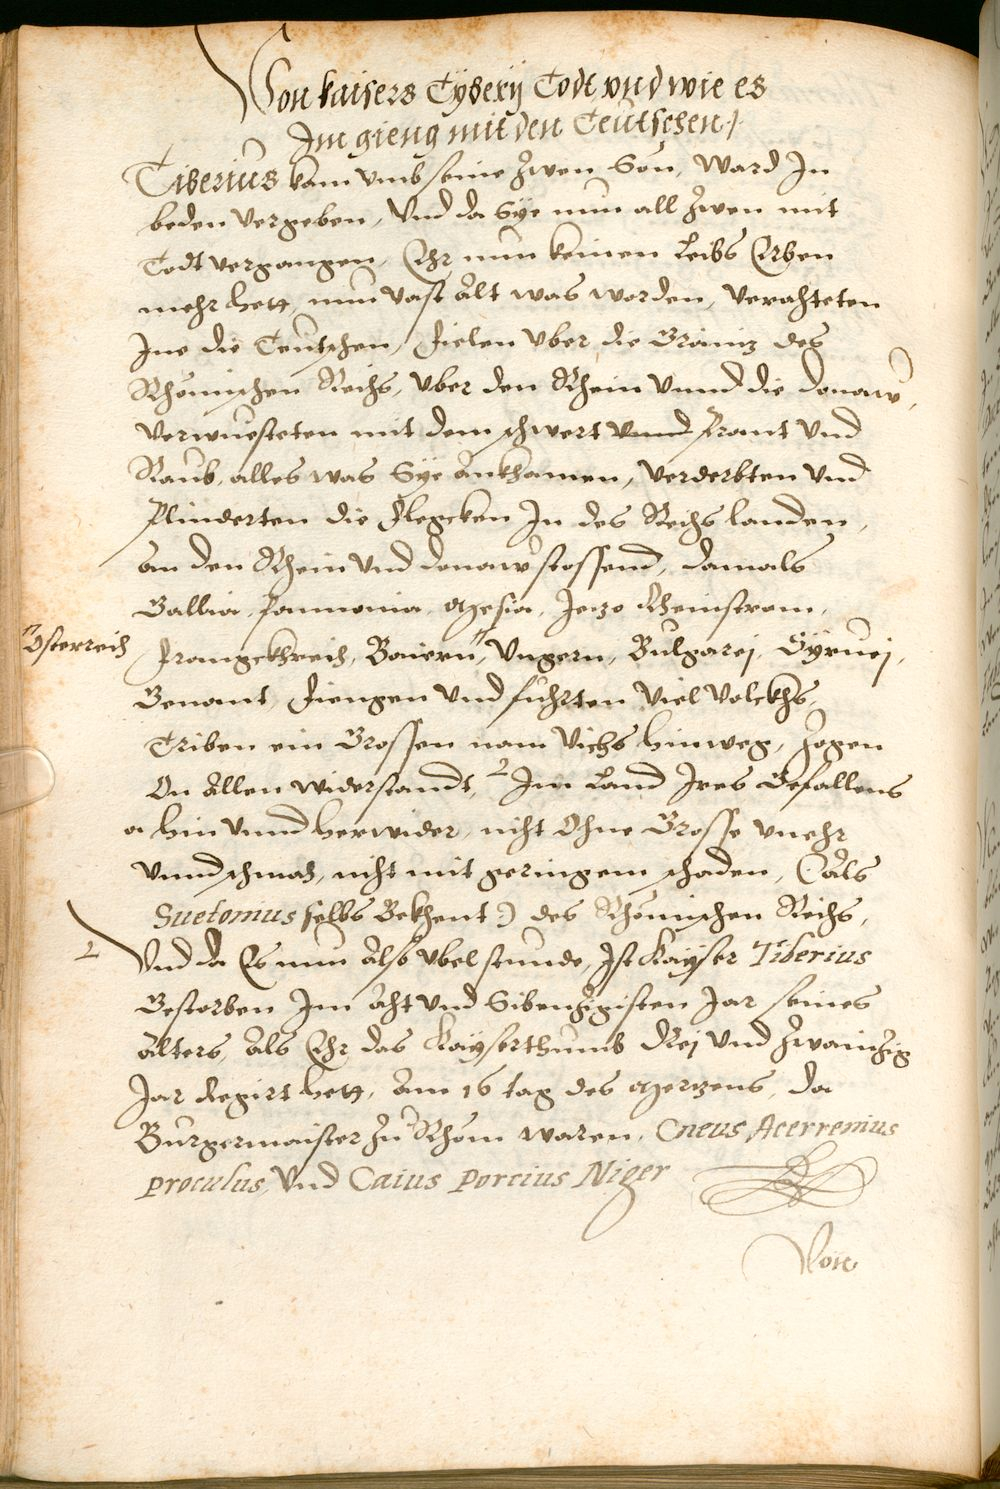 Von kaisers Tyberij Todt vnd wie es
Im gieng mit den Teutschen /.
Tiberius kam vmb seine zwen Son, Ward In
beden vergeben, Vnd da Sye nun all zwen mit
Todt vergangen, Ehr nun keinen Leibs Erben
mehr hett, nun vast Alt was worden, verachteten
Ine die Teutschen, fielen vber die Gräniz des
Rhömischen Reichs, vber den Rhein vnnd die donaw,
verwuesteten mit dem schwert vnnd prant vnd
Raub, alles was Sye ankhamen, verderbten vnd
plinderten die flegcken In des Reichs landen,
an den Rhein vnd donaw stossend, damals
Gallia, pannonia, Mesia, Jezo Rheinstrom,
Österreich
frangckhreich, Baiern, Vngern, Bulgarej, Syruej,
Genant, fiengen vnd fuhrten viel volckhs,
Triben ein Grossen nam vichs hinweg, zogen
On Allen widerstandt, Im Land Ires Gefallens
a hin vnnd herwider, nicht Ohne Grosse vnehr
vnnd schmach, nicht mit geringem schaden, (als
Suetonius selbs Bekhent:) des Rhömischen Reichs,
Vnd da Es nun Also vbel stunde, Ist Kayser Tiberius
Gestorben Im acht vnd Sibenzigisten Jar seines
alters, Als Ehr das Kayserthumb Drej vnd zwainzig
Jar Regirt hett, Am 16 tag des Merzens, da
Burgermaister zu Rhom waren, Cneus Acerrenius
proculus, vnd Caius Porcius Niger
Von